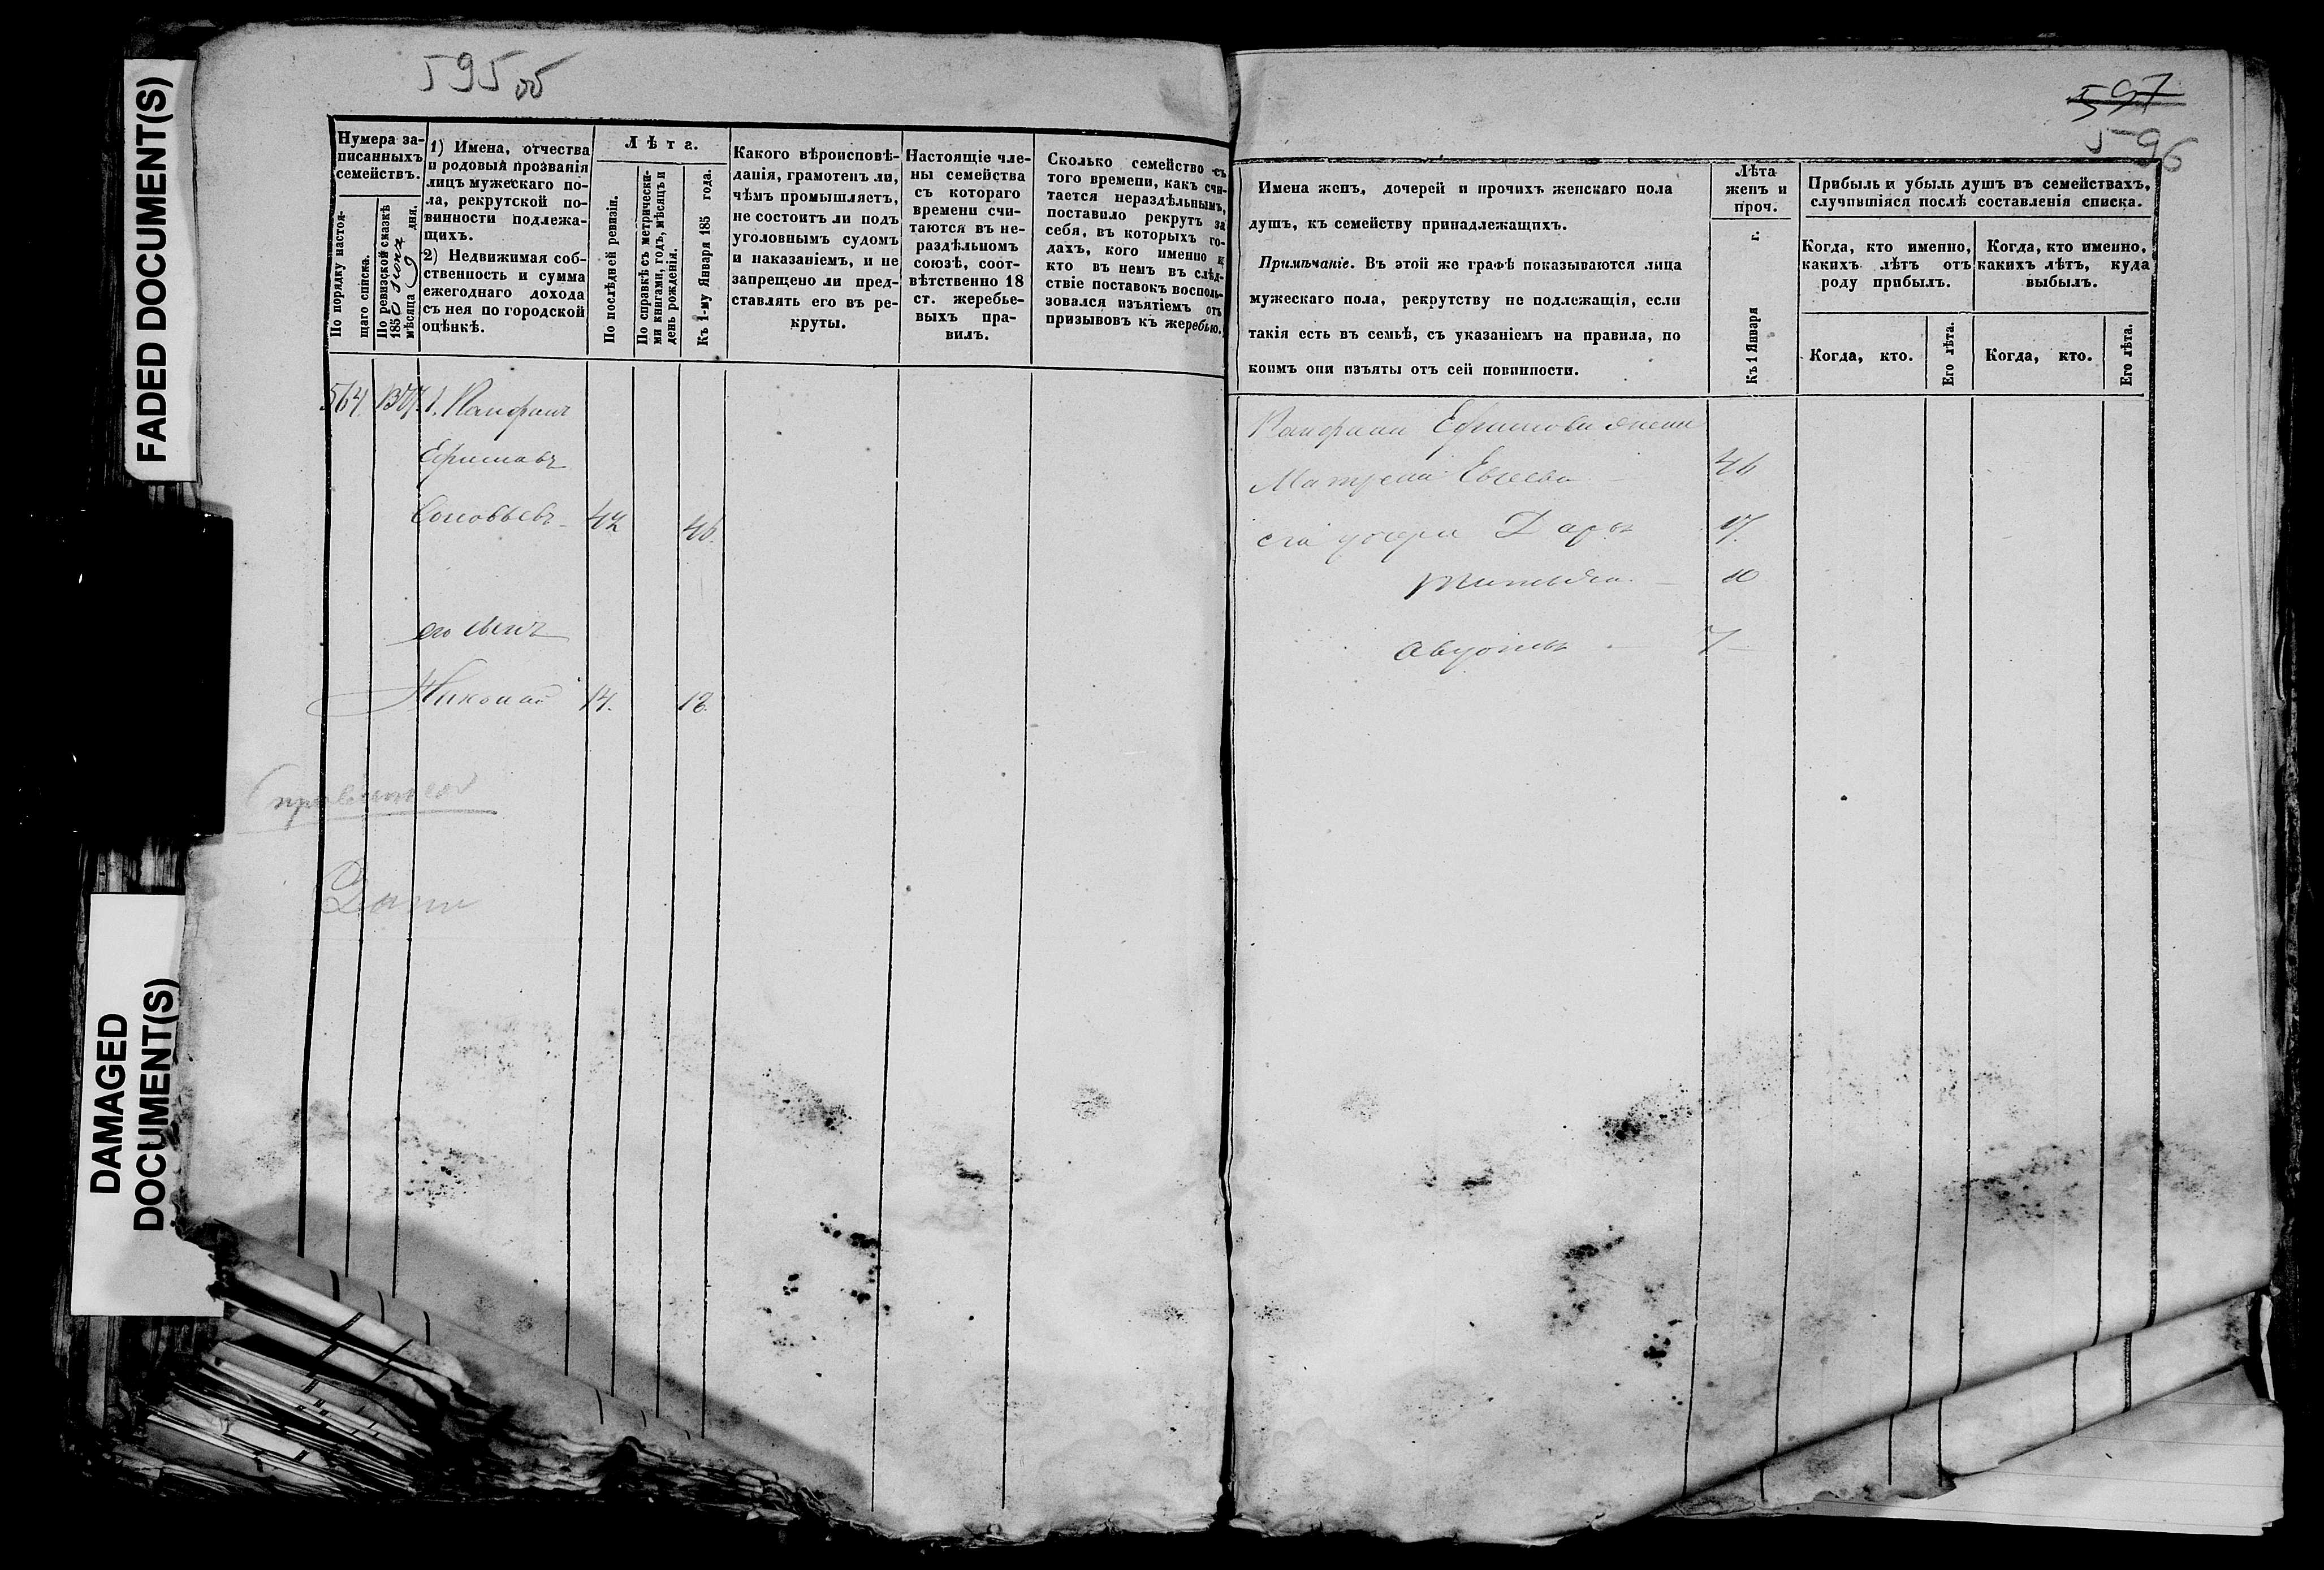 FADED DOCUMENT(S)
DAMAGED
DOCUMENT(S)
595 об
Нумера за-
писанныхъ
семействъ.
По порядку настоя-
щаго списка.
По ревизской сказкѣ
185
мѣсяца 9 дня.
1) Имена, отчества
и родовыя прозванія
лицъ мужескаго по-
ла, рекрутской по-
винности подлежа-
щихъ.
2) Недвижимая соб-
ственность и сумма
ежегоднаго дохода
съ нея по городской
оцѣнкѣ.
Лѣта.
По послѣдней ревизіи.
По справкѣ съ метрически-
ми книгами, годъ, мѣсяцъ и
день рожденія.
Къ 1-му Января 185 года.
Какого вѣроисповѣ-
данія, грамотенъ ли,
чѣмъ промышляетъ,
не состоитъ ли подъ
уголовнымъ судомъ
и наказаніемъ, и не
запрещено ли пред-
ставлять его въ ре-
круты.
Настоящіе чле-
ны семейства
съ котораго
времени счи-
таются въ не-
раздѣльномъ
союзѣ, соот-
вѣтственно 18
ст. жеребье-
выхъ пра-
вилъ.
Сколько семейство съ
того времени, какъ счи-
тается нераздѣльнымъ,
поставило рекрутъ за
себя, въ которыхъ го-
дахъ, кого именно и
кто въ немъ въ слѣд-
ствіе поставокъ восполь-
зовался изъятіемъ отъ
призывовъ къ жеребью.
564
Ефимовъ
Соловьевъ 42 46.
его сынъ
Николай 14. 18.
597
596
Имена женъ, дочерей и прочихъ женскаго пола
душъ, къ семейству принадлежащихъ.
Примѣчаніе. Въ этой же графѣ показываются лица
мужескаго пола, рекрутству не подлежащія, если
такія есть въ семьѣ, съ указаніемъ на правила, по
коимъ они изъяты отъ сей повинности.
Лѣта
женъ и
проч.
Къ 1 Января г.
Прибыль и убыль душъ въ семействахъ,
случившіяся послѣ составленія списка.
Когда, кто именно,
какихъ лѣтъ отъ
роду прибылъ.
Когда, кто именно,
какихъ лѣтъ, куда
выбылъ.
Когда, кто.
Его лѣта.
Когда, кто.
Его лѣта.
Ефимова жена
Матрена Евсеева 46
его дочери Дарья 17.
10
Авдотья 7